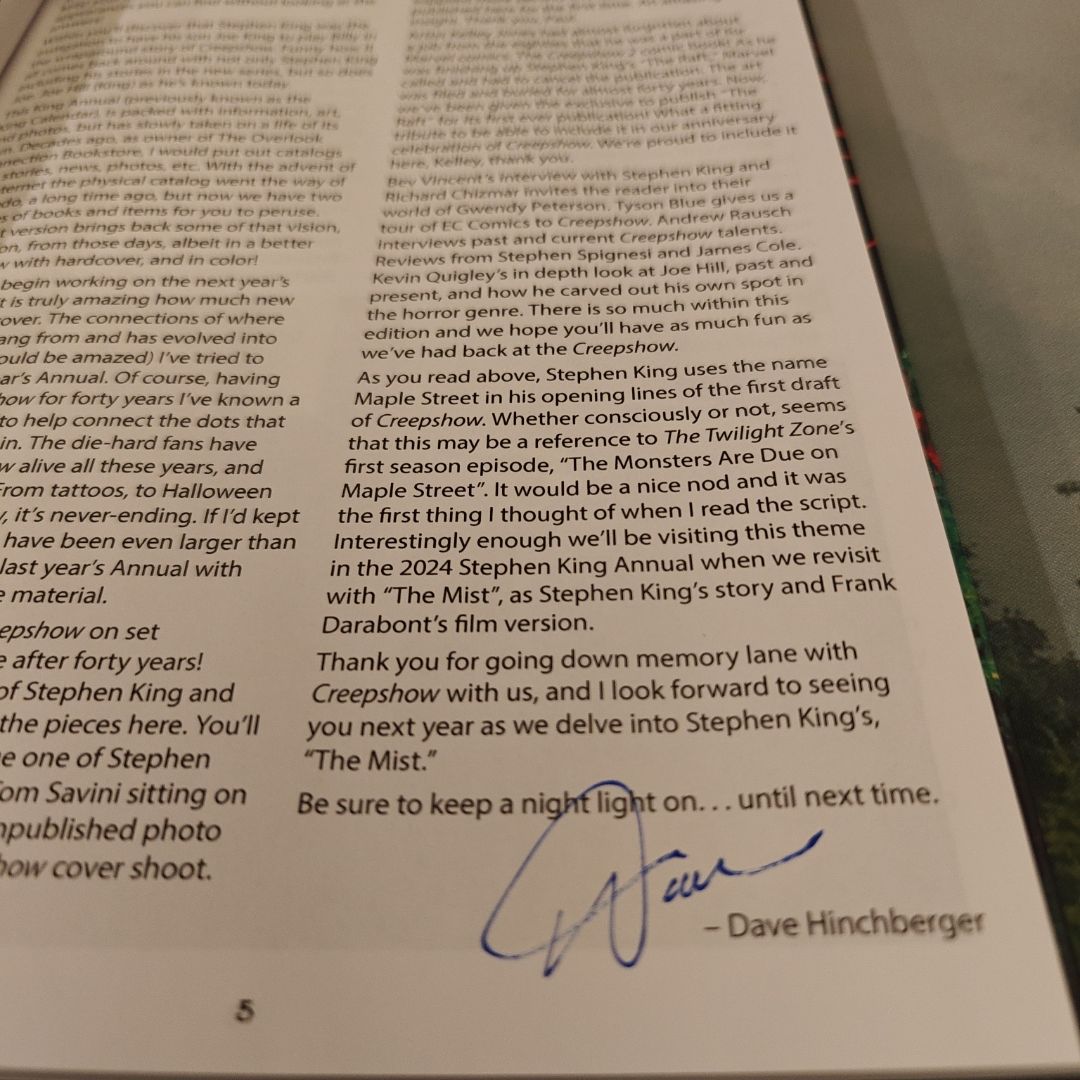 to have his son Joe King to play Billy in
story of Creepshow. Funny how it
back around with not only Stephen King
stories in the new series, but so does
Joe Hill (King) as he's known today.
King Annual (previously known as the
Calendar), is packed with information, art,
photos, but has slowly taken on a life of its
Decades ago, as owner of The Overlook
nection Bookstore, I would put out catalogs
stories, news, photos, etc. With the advent of
ternet the physical catalog went the way of
do, a long time ago, but now we have two
s of books and items for you to peruse.
t version brings back some of that vision,
on, from those days, albeit in a better
w with hardcover, and in color!
begin working on the next year's
t is truly amazing how much new
over. The connections of where
ang from and has evolved into
ould be amazed) I've tried to
ar's Annual. Of course, having
how for forty years I've known a
to help connect the dots that
in. The die-hard fans have
w alive all these years, and
From tattoos, to Halloween
y, it's never-ending. If I'd kept
have been even larger than
last year's Annual with
e material.
eepshow on set
e after forty years!
of Stephen King and
the pieces here. You'll
e one of Stephen
om Savini sitting on
npublished photo
how cover shoot.
Artist Kelley Jones had almost forgotten about
a job from the eighties that he was a part of for
Marvel comics. The Creepshow 2 comic book! As he
was finishing up Stephen King's "The Raft," Marvel
called and had to cancel the publication. The art
was filed and buried for almost forty years. Now,
we've been given the exclusive to publish "The
Raft" for its first ever publication! What a fitting
tribute to be able to include it in our anniversary
celebration of Creepshow. We're proud to include it
here, Kelley, thank you.
Bev Vincent's interview with Stephen King and
Richard Chizmar invites the reader into their
world of Gwendy Peterson. Tyson Blue gives us a
tour of EC Comics to Creepshow. Andrew Rausch
interviews past and current Creepshow talents.
Reviews from Stephen Spignesi and James Cole.
Kevin Quigley's in depth look at Joe Hill, past and
present, and how he carved out his own spot in
the horror genre. There is so much within this
edition and we hope you'll have as much fun as
we've had back at the Creepshow.
As you read above, Stephen King uses the name
Maple Street in his opening lines of the first draft
of Creepshow. Whether consciously or not, seems
that this may be a reference to The Twilight Zone's
first season episode, "The Monsters Are Due on
Maple Street". It would be a nice nod and it was
the first thing I thought of when I read the script.
Interestingly enough we'll be visiting this theme
in the 2024 Stephen King Annual when we revisit
with "The Mist", as Stephen King's story and Frank
Darabont's film version.
Thank you for going down memory lane with
Creepshow with us, and I look forward to seeing
you next year as we delve into Stephen King's,
"The Mist."
Be sure to keep a night light on. . . until next time.
Dave
– Dave Hinchberger
5